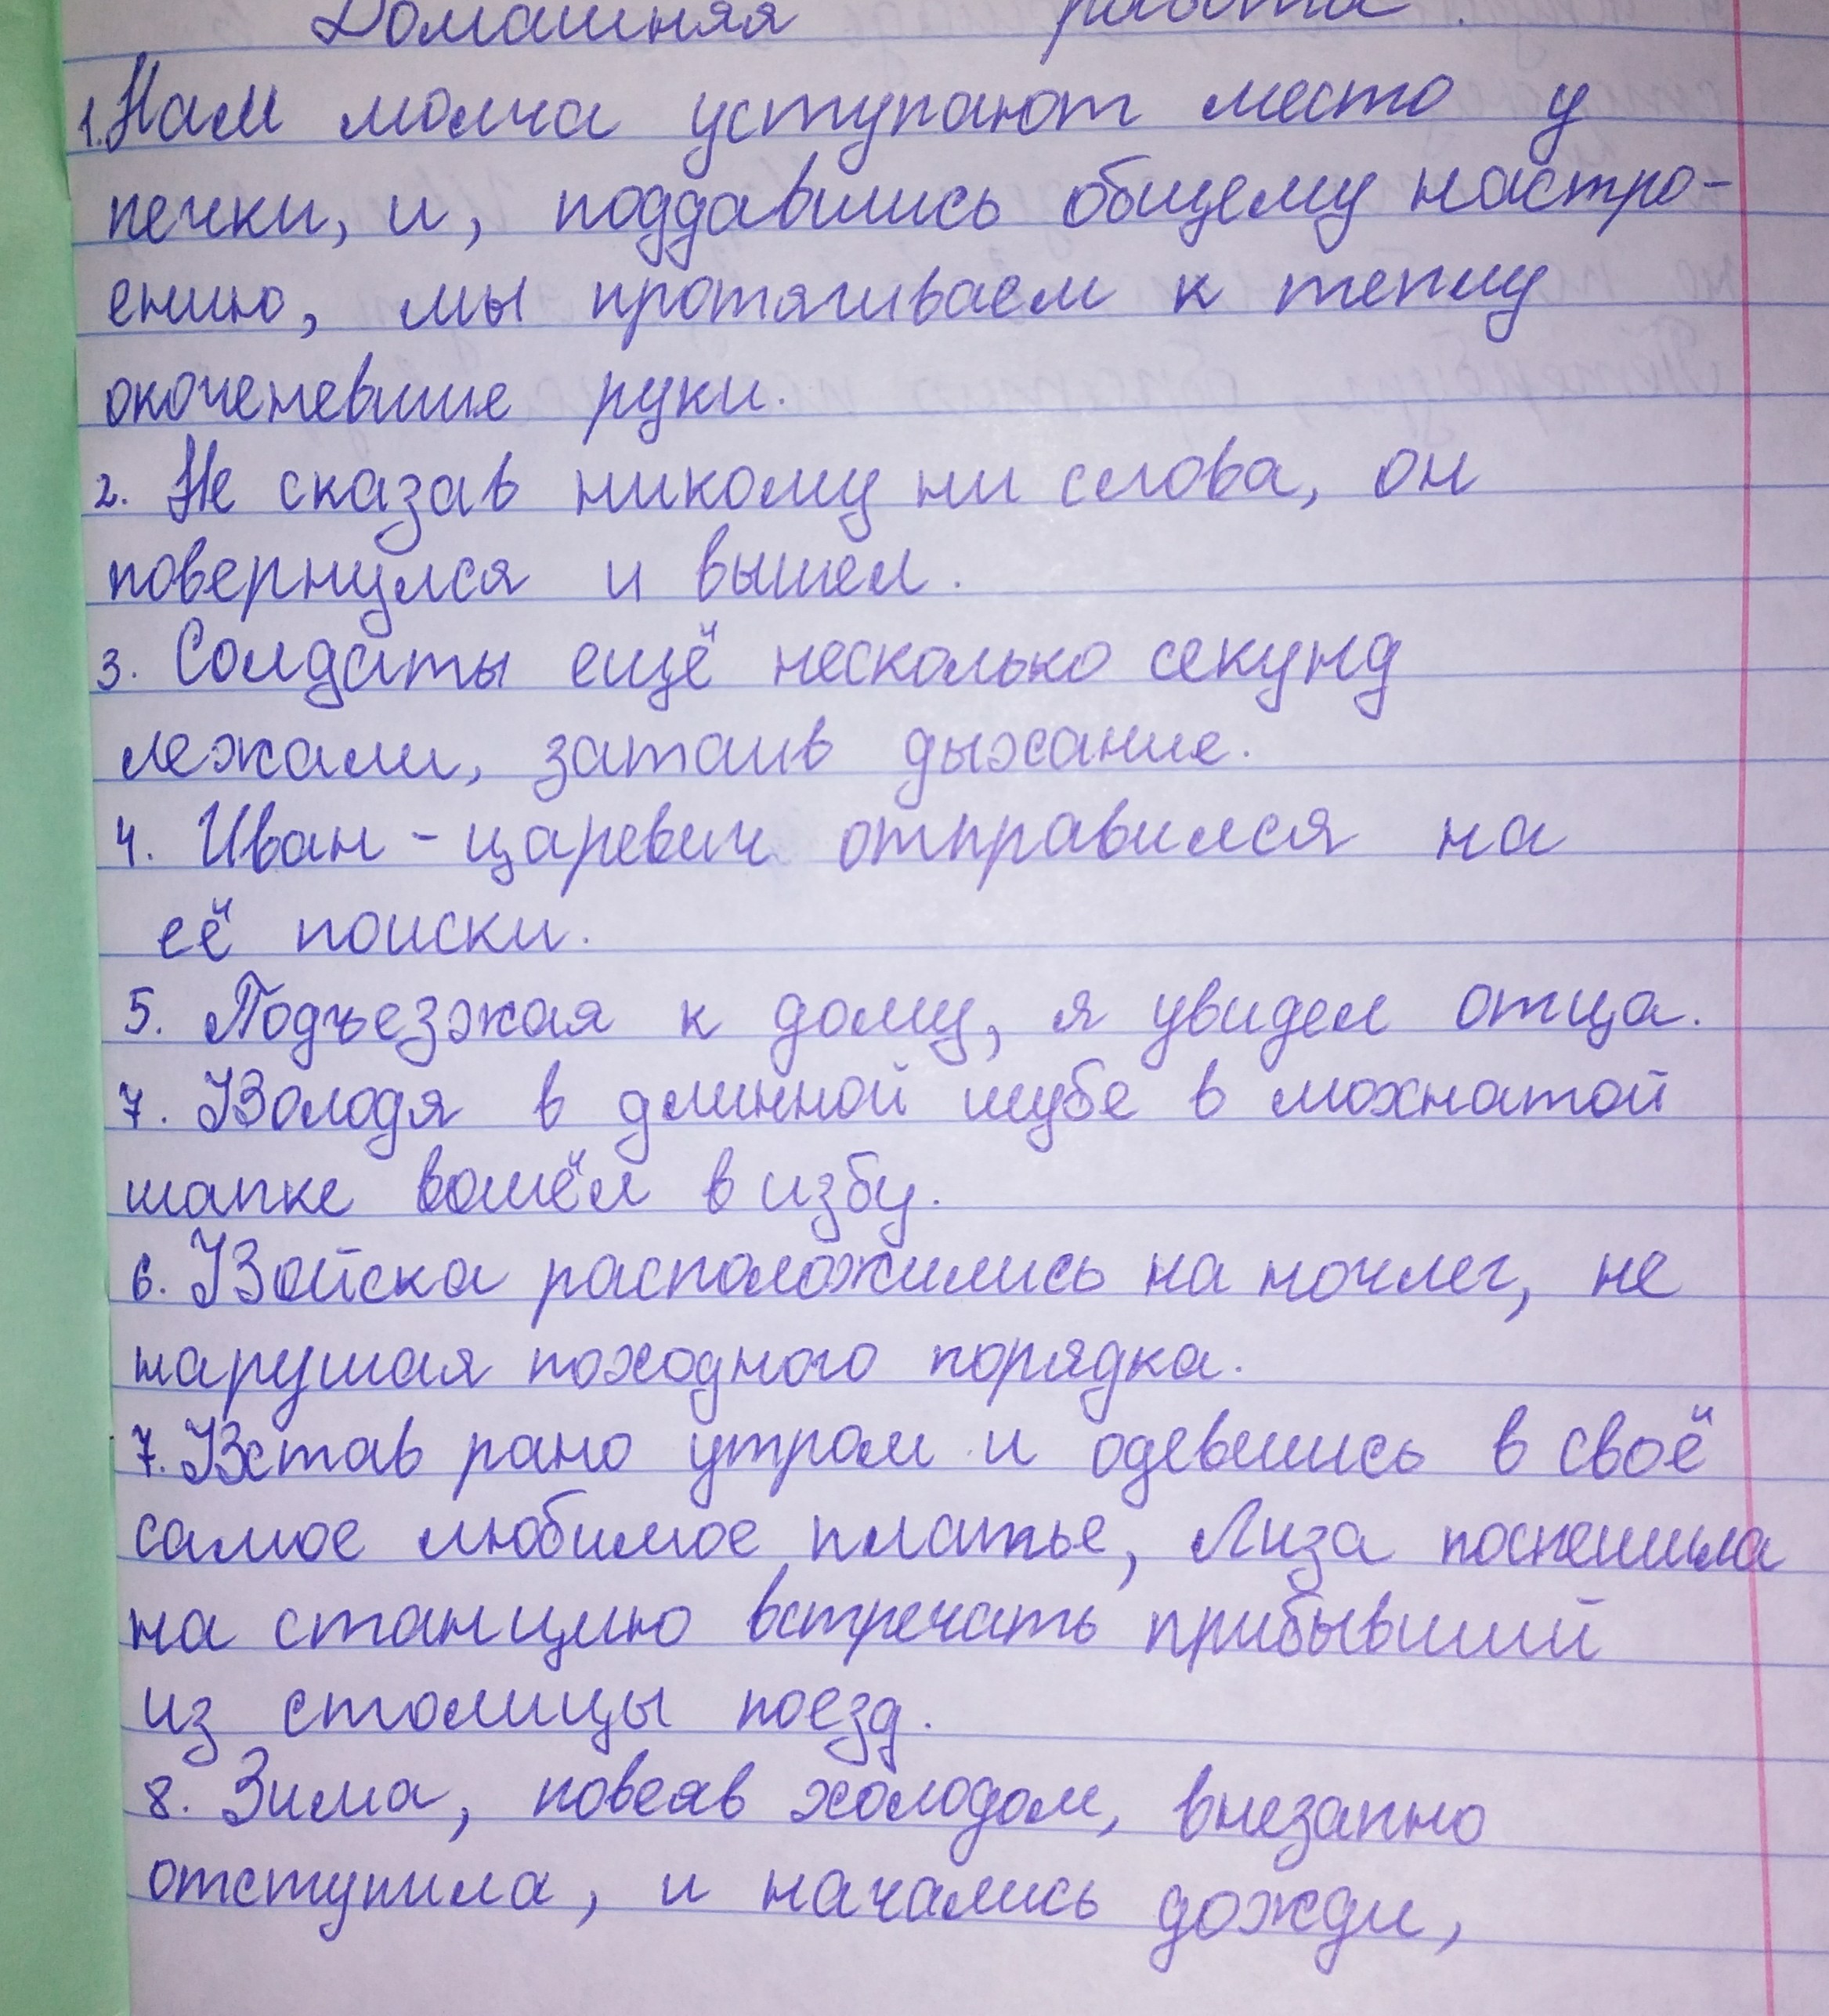 Домашняя работа.
1. Нам молча уступают место у
печки, и, поддавшись общему настро-
ению, мы протягиваем к теплу
окоченевшие руки.
2. Не сказав никому ни слова, он
повернулся и вышел.
3. Солдаты ещё несколько секунд
лежали, затаив дыхание.
4. Иван-царевич отправился на
её поиски.
5. Подъезжая к дому, я увидел отца.
7. Володя в длинной шубе в мохнатой
шапке вошёл в избу.
6. Войска расположились на ночлег, не
нарушая походного порядка.
7. Встав рано утром и одевшись в своё
самое любимое платье, Лиза поспешила
на станцию встречать прибывший
из столицы поезд.
8. Зима, повеяв холодом, внезапно
отступила, и начались дожди,